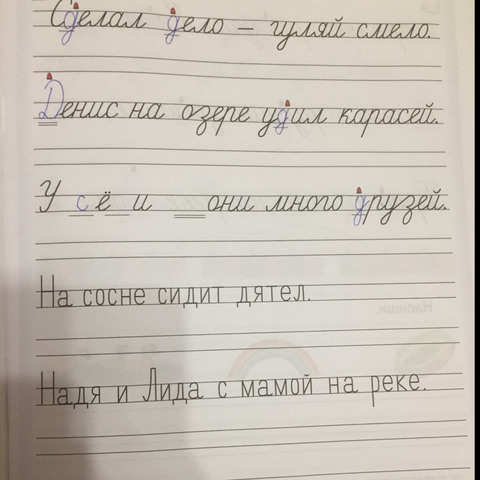 Сделал дело — гуляй смело.
Денис на озере удил карасей.
У сё и они много друзей.
На сосне сидит дятел.
Надя и Лида с мамой на реке.
Напиши.